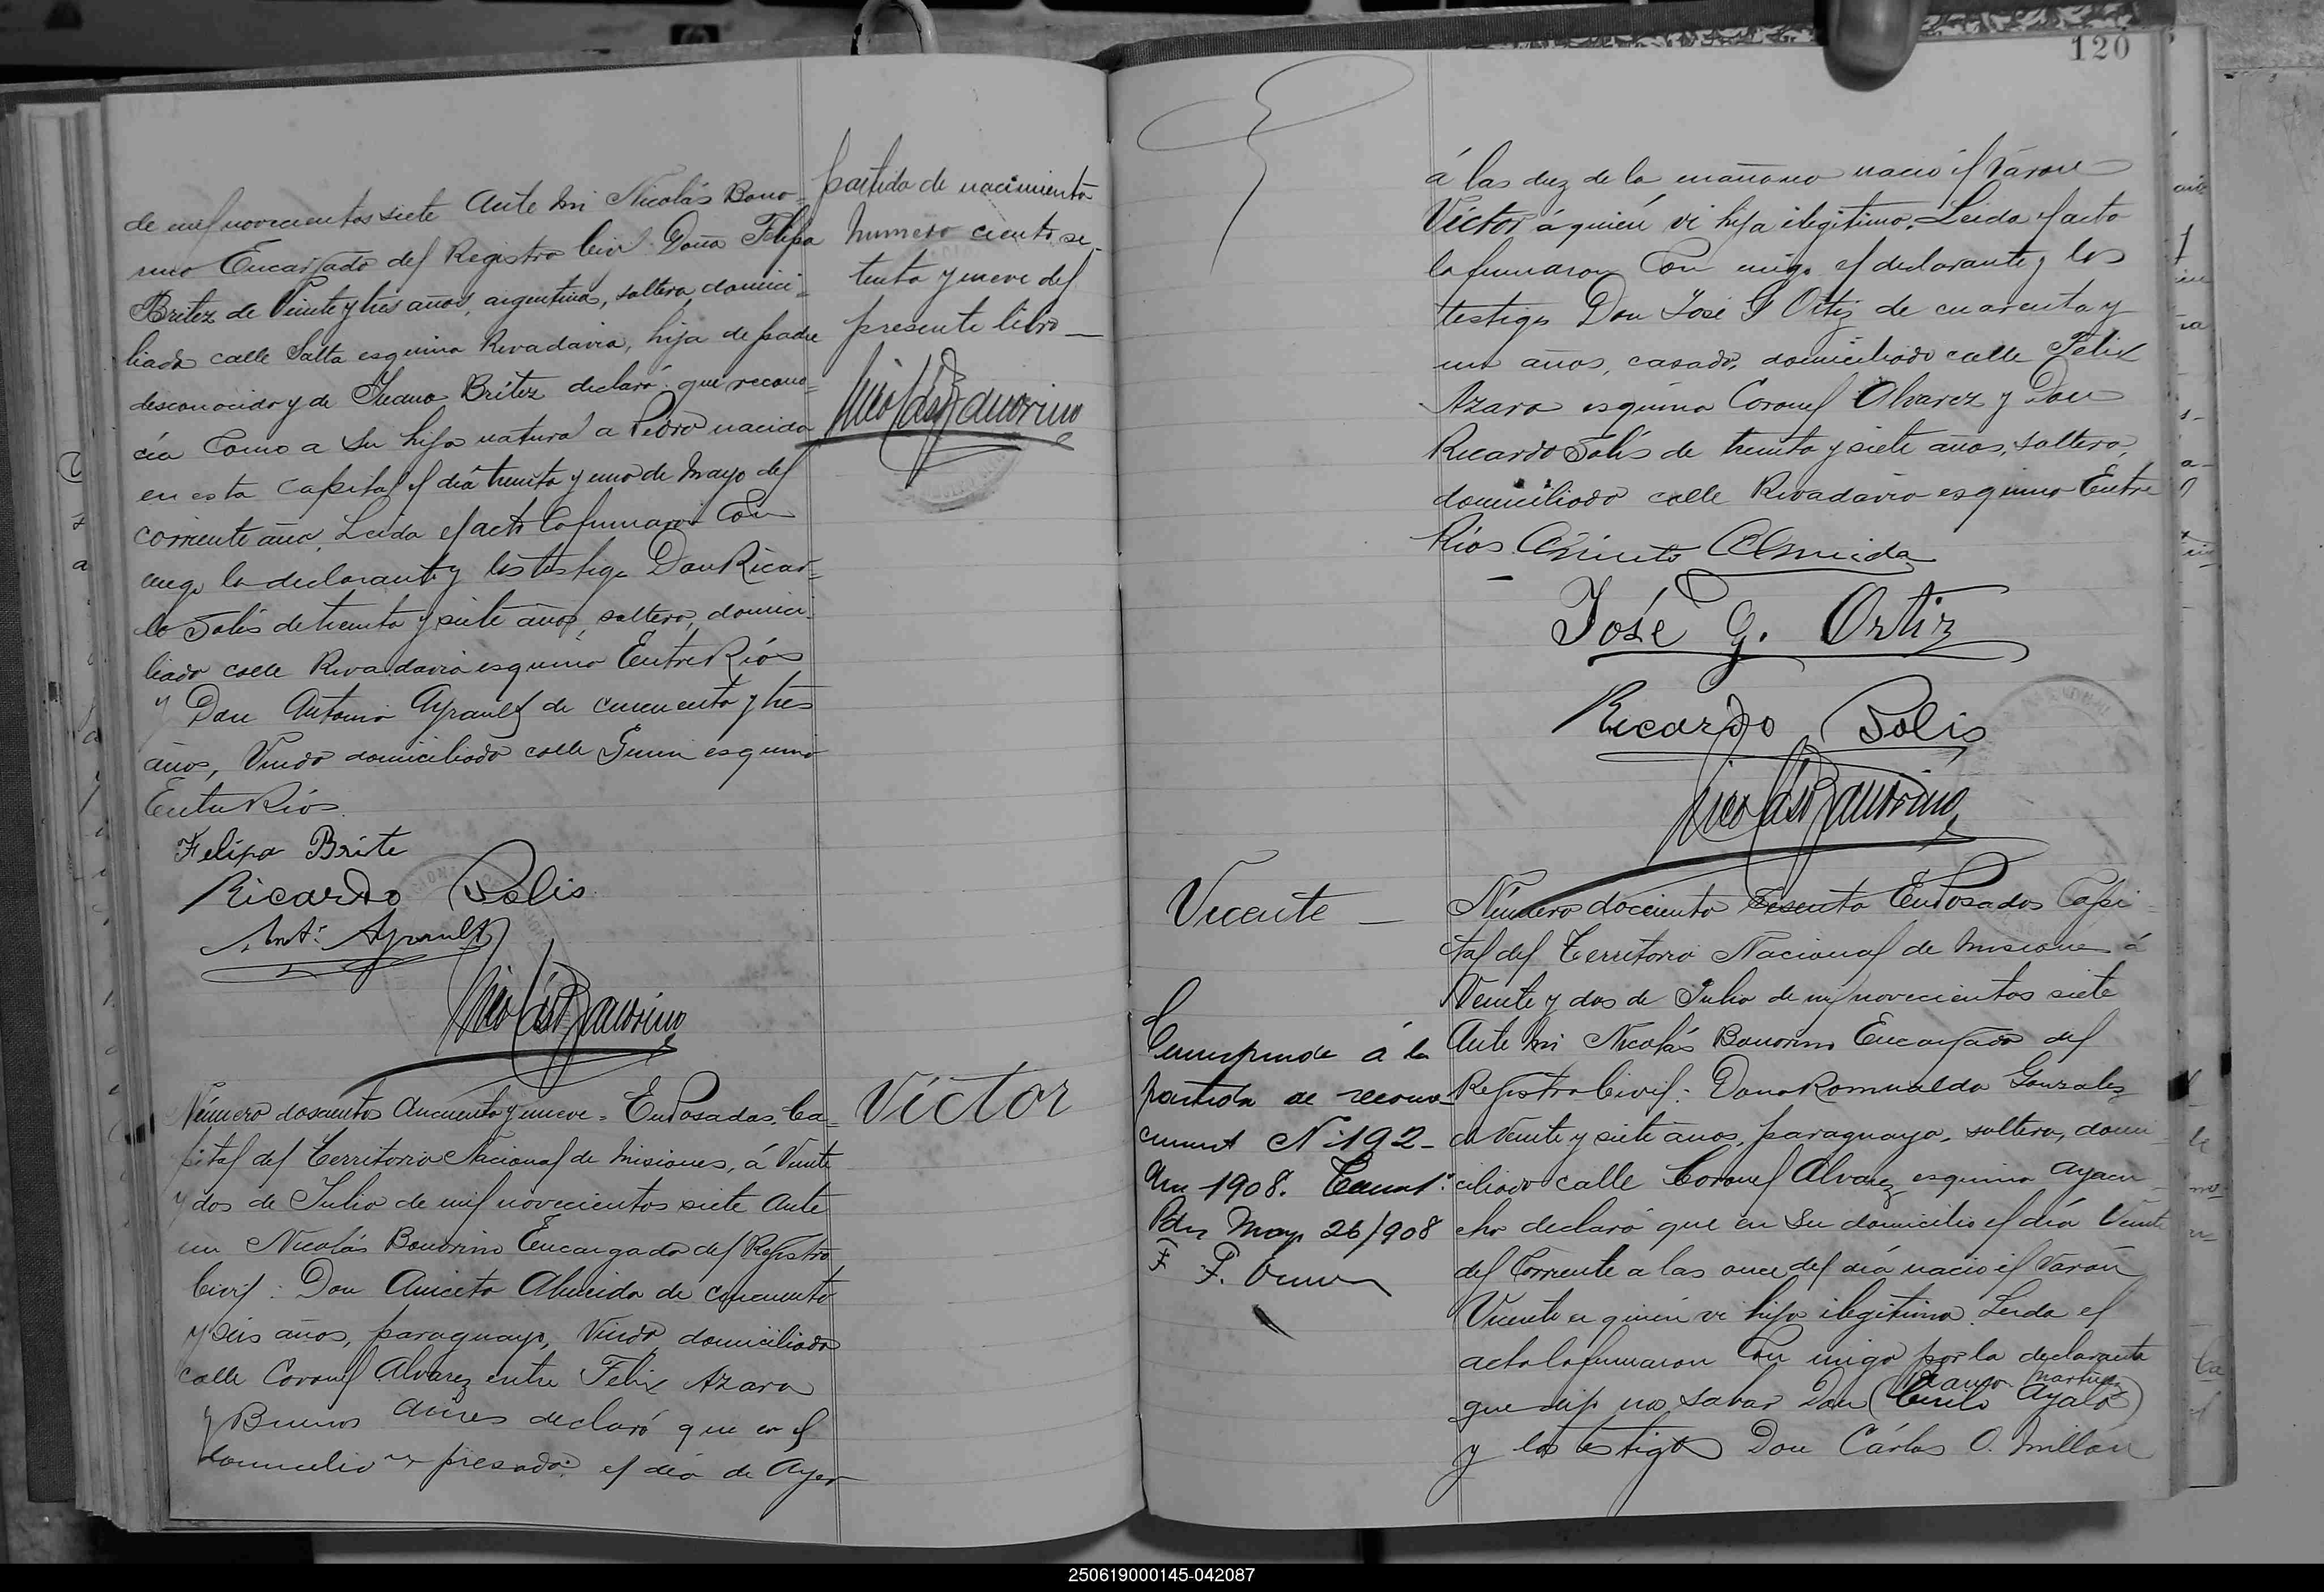 de mil novecientos siete Ante mi Nicolás Bono=
rino Encargado del Registro Civil: Doña Felipa
Britez de Veinte y tres años, argentina, soltera, domici=
liada calle Salta esquina Rivadavia, hija de padre
desconocido y de Juana Britez declaró: que recono=
cia como a su hijo natural a Pedro nacido
en esta Capital el día treinta y uno de Mayo del
corriente año. Leida el acta la firmaron con
migo la declarante y los testigos Don Ricar=
do Solis de treinta y siete años, soltero, domici-
liado calle Rivadavia esquina Entre Ríos
y Don Antonio Ayrault de cincuenta y tres
años, Viudo domiciliado calle Junin esquina
Entre Ríos.
Felipa Brite
Ricardo Solis
Ant. Ayrault
Nicolás Bonorino
partida de nacimiento
Numero ciento se-
tenta y nueve del
presente libro
Nicolás Bonorino
Número doscientos cincuenta y nueve = En Posadas, Ca=
pital del Territorio Nacional de Misiones, á Veinte
y dos de Julio de mil novecientos siete Ante
mi Nicolás Bonorino Encargado del Registro
Civil: Don Aniceto Almeida de cincuenta
y seis años, paraguayo, Viudo domiciliado
calle Coronel Alvarez entre Felix Azara
y Buenos Aires declaró que en el
domicilio expresado el día de Ayer
Víctor
120
á las diez de la mañana nació el Varon
Víctor á quién vi hijo ilegitimo. Leida el acta
la firmaron con migo el declarante y los
testigos Don José G Ortiz de cuarenta y
un años, casado, domiciliado calle Felix
Azara esquina Coronel Alvarez y Don
Ricardo Solís de treinta y siete años, soltero,
domiciliado calle Rivadavia esquina Entre
Ríos Aniceto Almeida
José G. Ortiz
Ricardo Solis
Nicolás Bonorino
Vicente
Corresponde á la
partida de recono-
cimient N° 192-
Año 1908.
Pdas Mayo 26/908
Número docciento sesenta En Posadas Capi-
tal del Territorio Nacional de Misiones á
Veinte y dos de Julio de mil novecientos siete
Ante mi Nicolás Bonorino Encargado del
Registro Civil: Doña Romualda Gonzalez
de Veinte y siete años, paraguaya, soltera, domi-
ciliada calle Coronel Alvarez esquina Ayacu-
cho declaró que en su domicilio el día Veinte
del Corriente a las once del día nació el Varón
Vicente a quien vi hijo ilegitimo. Leida el
acta la firmaron con migo por la declarante
que dijo no saber Don (Cirilo Ayala)
Martinez
y los testigos Don Cárlos O. Millan
250619000145-042087